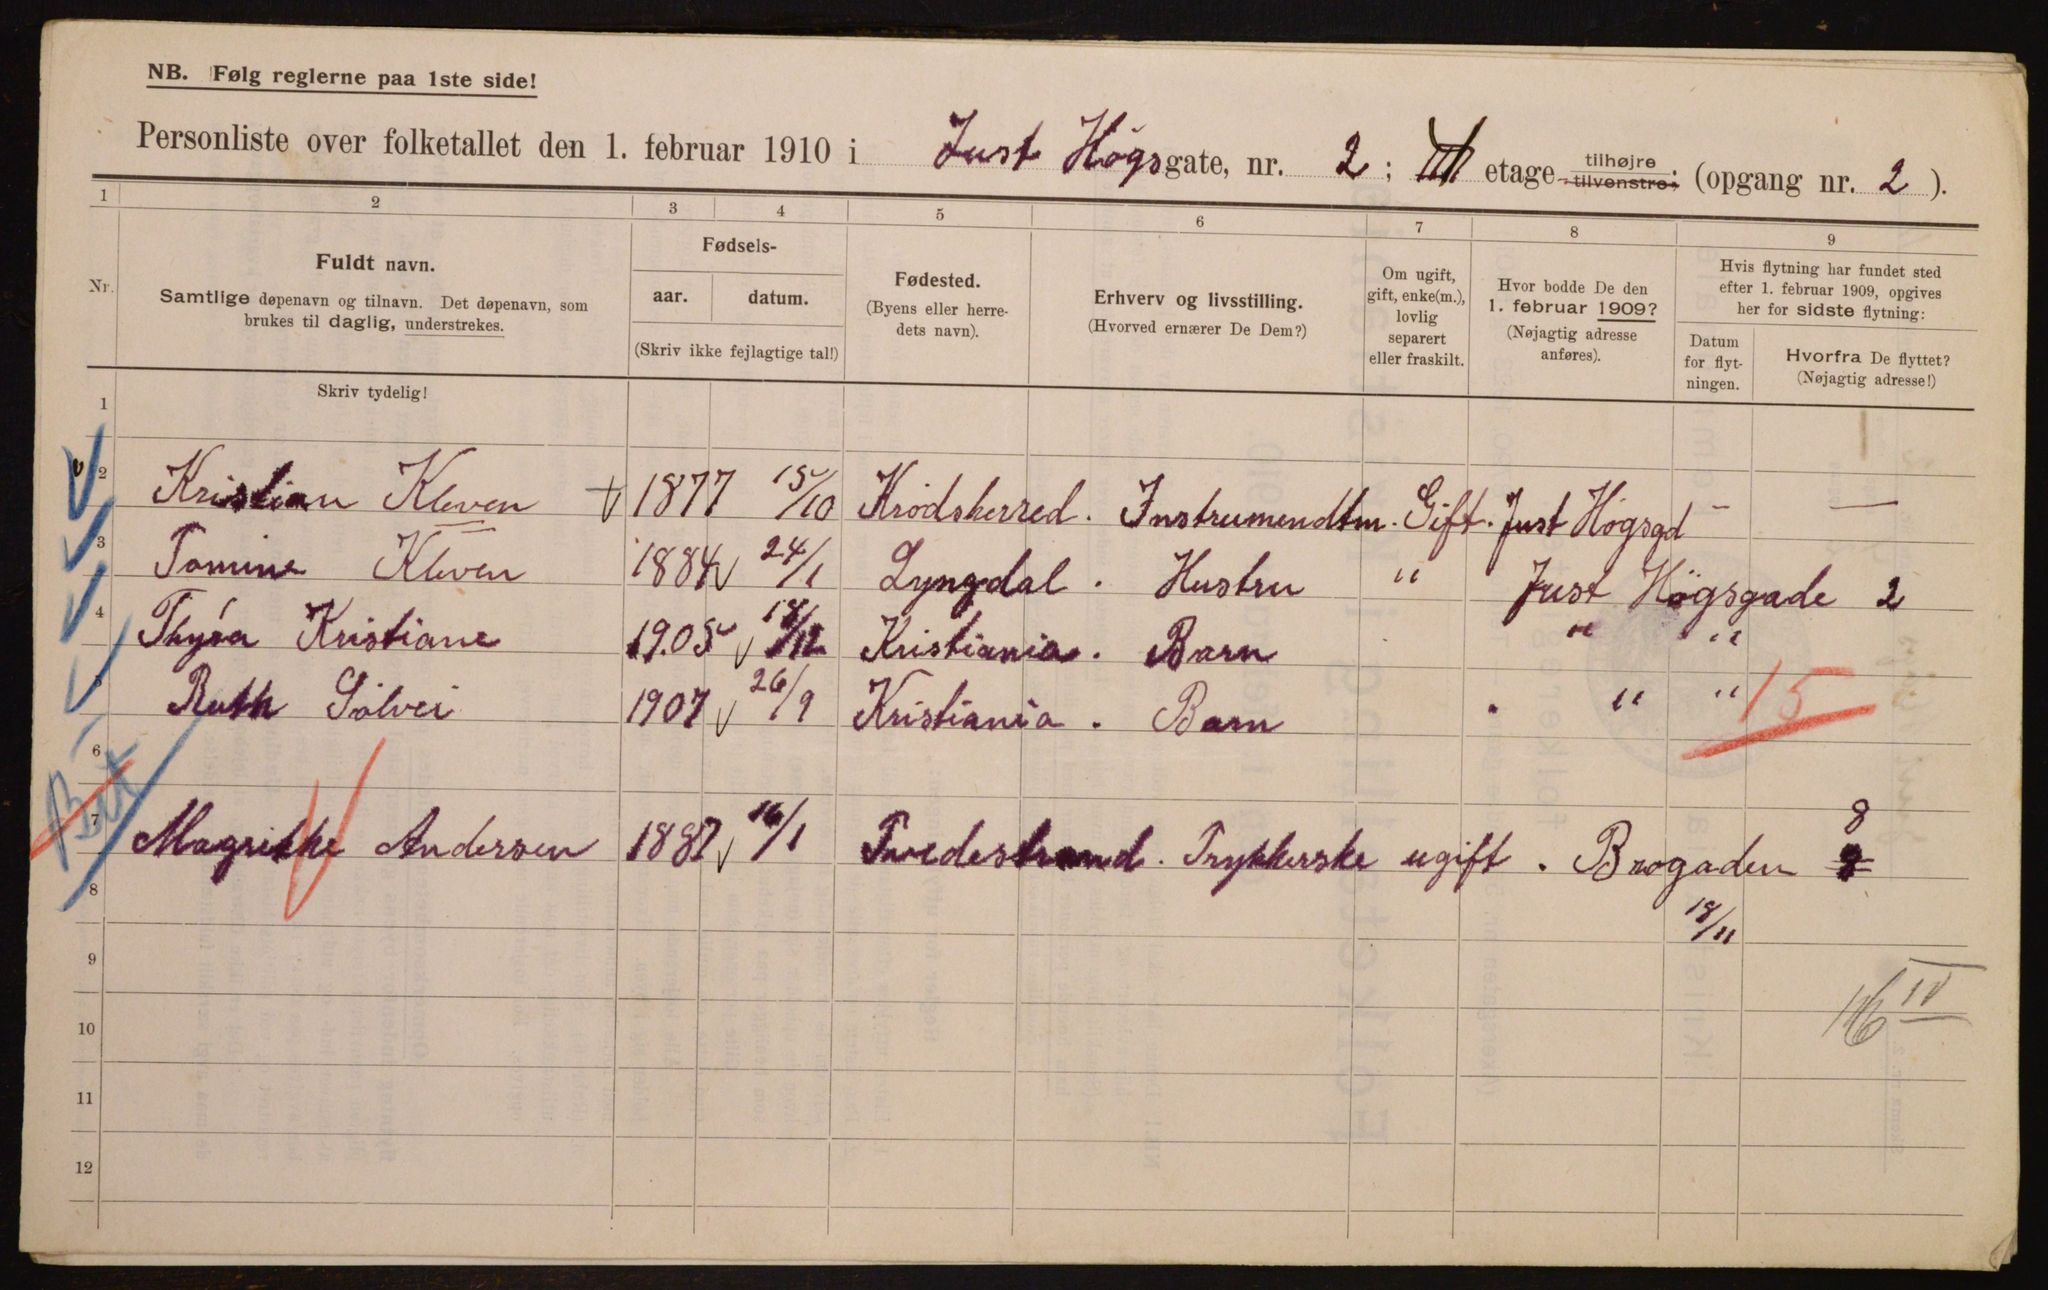 NB. Følg reglerne paa 1ste side!
Personliste over folketallet den 1. februar 1910 i Just Høgsgate, nr. 2 ; etage tilhøjre tilvenstre; (opgang nr. 2 ).
1 2 3 4 5 6 7 8 9
Nr. Fuldt navn. Samtlige døpenavn og tilnavn. Det døpenavn, som brukes til daglig, understrekes. Skriv tydelig!
Fødsels- aar. datum. (Skriv ikke fejlagtige tal!)
Fødested. (Byens eller herredets navn).
Erhverv og livsstilling. (Hvorved ernærer De Dem?)
Om ugift, gift, enke(m.), lovlig separert eller fraskilt.
Hvor bodde De den 1. februar 1909? (Nøjagtig adresse anføres).
Hvis flytning har fundet sted efter 1. februar 1909, opgives her for sidste flytning:
Datum for flytningen.
Hvorfra De flyttet? (Nøjagtig adresse!)
1
2 Kristian Kleven 1877 15/10 Krødsherred. Instrumendtm. Gift. Just Høgsgd — —
3 Tomine Kleven 1884 24/1 Lyngdal. Hustru " Just Högsgade 2
4 Thyra Kristiane 1905 18/12 Kristiania. Barn " "
5 Ruth Sólvei 1907 26/9 Kristiania. Barn " "
15
6
Bet
7 Magrithe Andersen 1887 16/1 Tvedestrand. Trykkerske ugift. Brogaden 8
8
18/11
9
16 IV
10
11
12